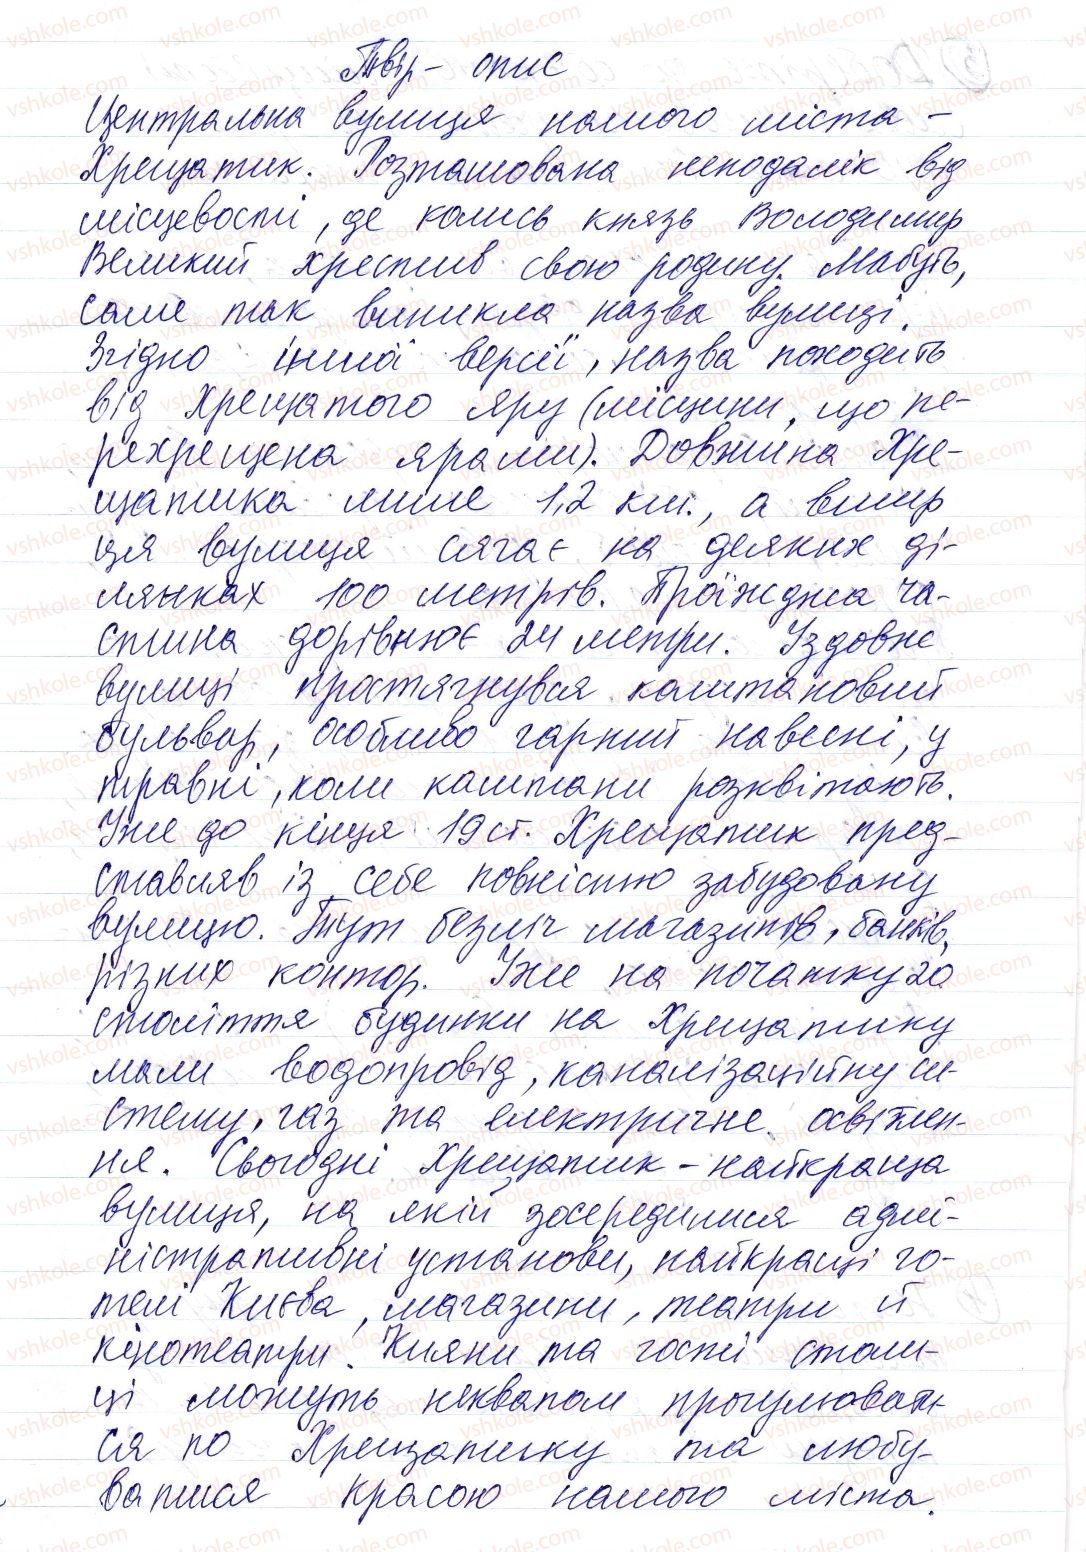 Твір - опис
Центральна вулиця нашого міста -
Хрещатик. Розташована неподалік від
місцевості, де колись князь Володимир
Великий хрестив свою родину. Мабуть,
саме так виникла назва вулиці.
Згідно іншої версії, назва походить
від Хрещатого яру (місцини, що пе-
рехрещена ярами). Довжина Хре-
щатика лише 1,2 км., а вшир
ця вулиця сягає на деяких ді-
лянках 100 метрів. Проїжджа ча-
стина дорівнює 24 метри. Уздовж
вулиці простягнувся каштановий
бульвар, особливо гарний навесні, у
травні, коли каштани розквітають.
Уже до кінця 19 ст. Хрещатик пред-
ставляв із себе повністю забудовану
вулицю. Тут безліч магазинів, банків,
різних контор. Уже на початку 20
століття будинки на Хрещатику
мали водопровід, каналізаційну си-
стему, газ та електричне освітлен-
ня. Сьогодні Хрещатик - найкраща
вулиця, на якій зосередилися адмі-
ністративні установи, найкращі го-
телі Києва, магазини, театри й
кінотеатри. Кияни та гості столи-
ці можуть неквапом прогулювати-
ся по Хрещатику та любу-
ватися красою нашого міста.
vshkole.com